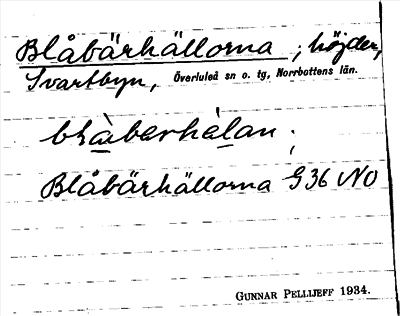 Blåbärhällorna, höjder,
Svartbyn, Överluleå sn o. tg, Norrbottens län.
blàberhèlan;
Blåbärhällorna G36 NO
GUNNAR PELLIJEFF 1934.